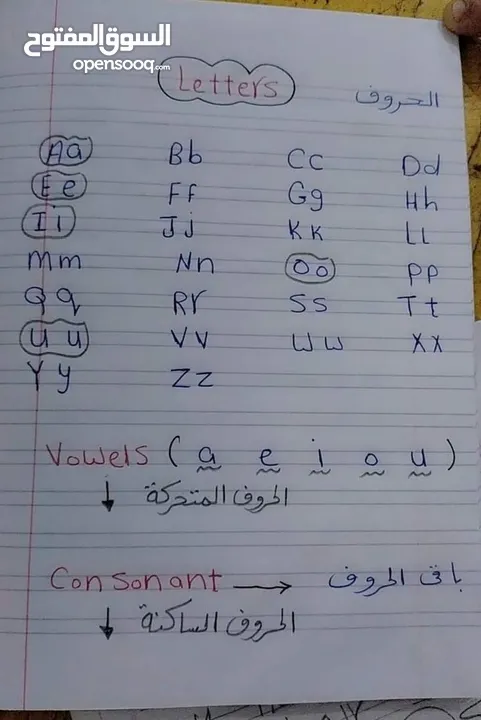 السوق المفتوح
opensooq.com
Letters الحروف
Aa Bb Cc Dd
Ee Ff Gg Hh
Ii Jj Kk Ll
Mm Nn Oo Pp
Qq Rr Ss Tt
Uu Vv Ww Xx
Yy Zz
Vowels ( a e i o u )
↓ الحروف المتحركة
Consonant → باقى الحروف
↓ الحروف الساكنة